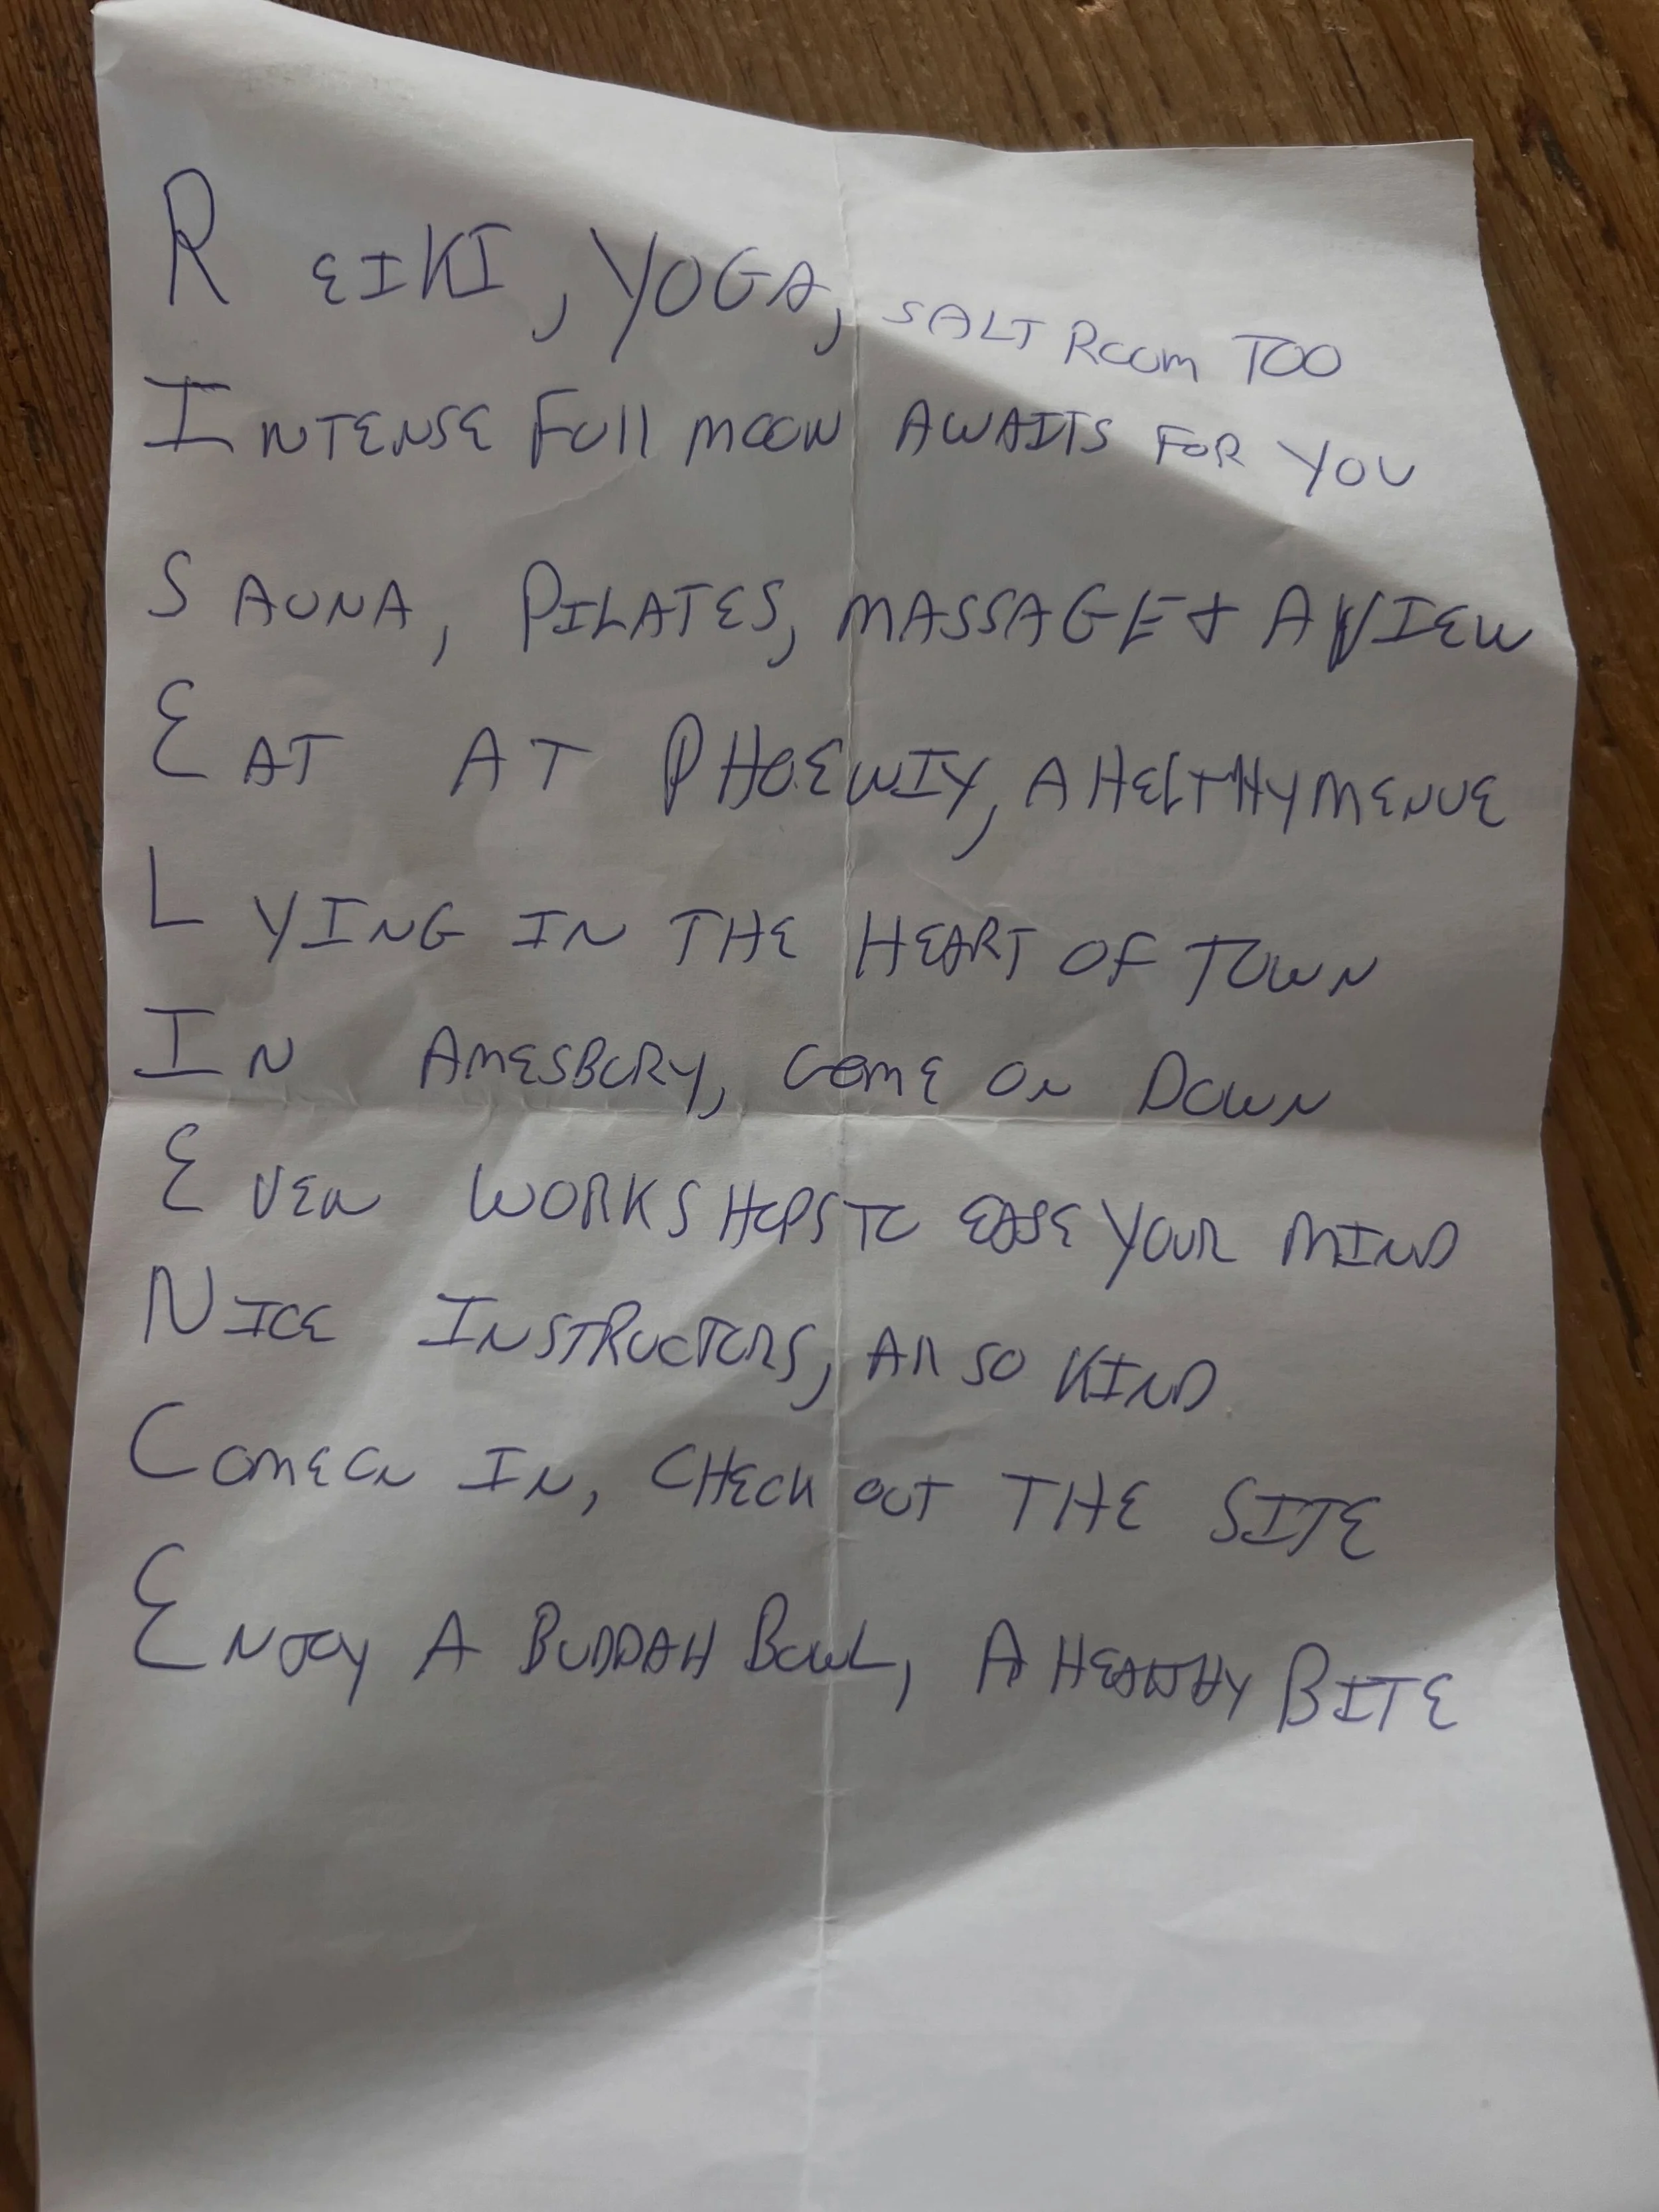 REIKI, YOGA, SALT ROOM TOO
INTENSE FUll MOON AWAITS FOR YOU
SAUNA, PILATES, MASSAGE & A VIEW
EAT AT PHOENIX, A HELTHY MENUE
LYING IN THE HEART OF TOWN
IN AMESBURY, COME ON DOWN
EVEN WORKSHOPS TO EASE YOUR MIND
NICE INSTRUCTORS, All SO KIND
COME ON IN, CHECK OUT THE SITE
ENJOY A BUDDAH BOWL, A HEALTHY BITE